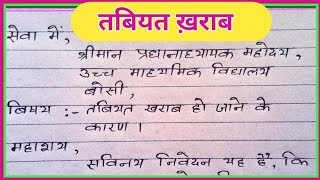 तबियत ख़राब
सेवा में,
श्रीमान प्रधानाध्यापक महोदय,
उच्च माध्यमिक विद्यालय
बोसी,
विषय :- तबियत खराब हो जाने के
कारण ।
महाशय,
सविनय निवेदन यह है, कि